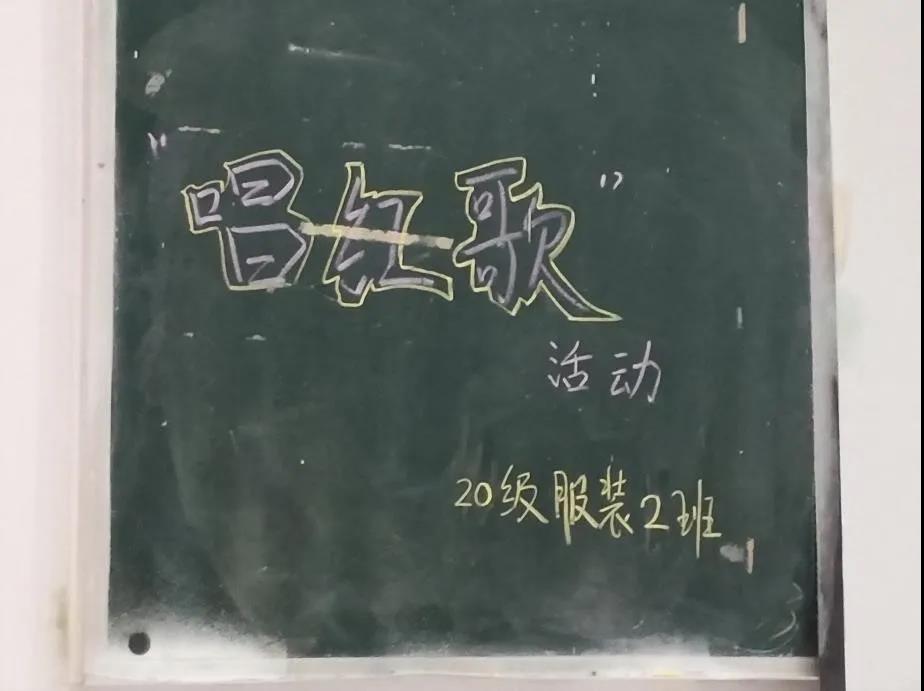 "唱红歌"
活动
20级服装2班